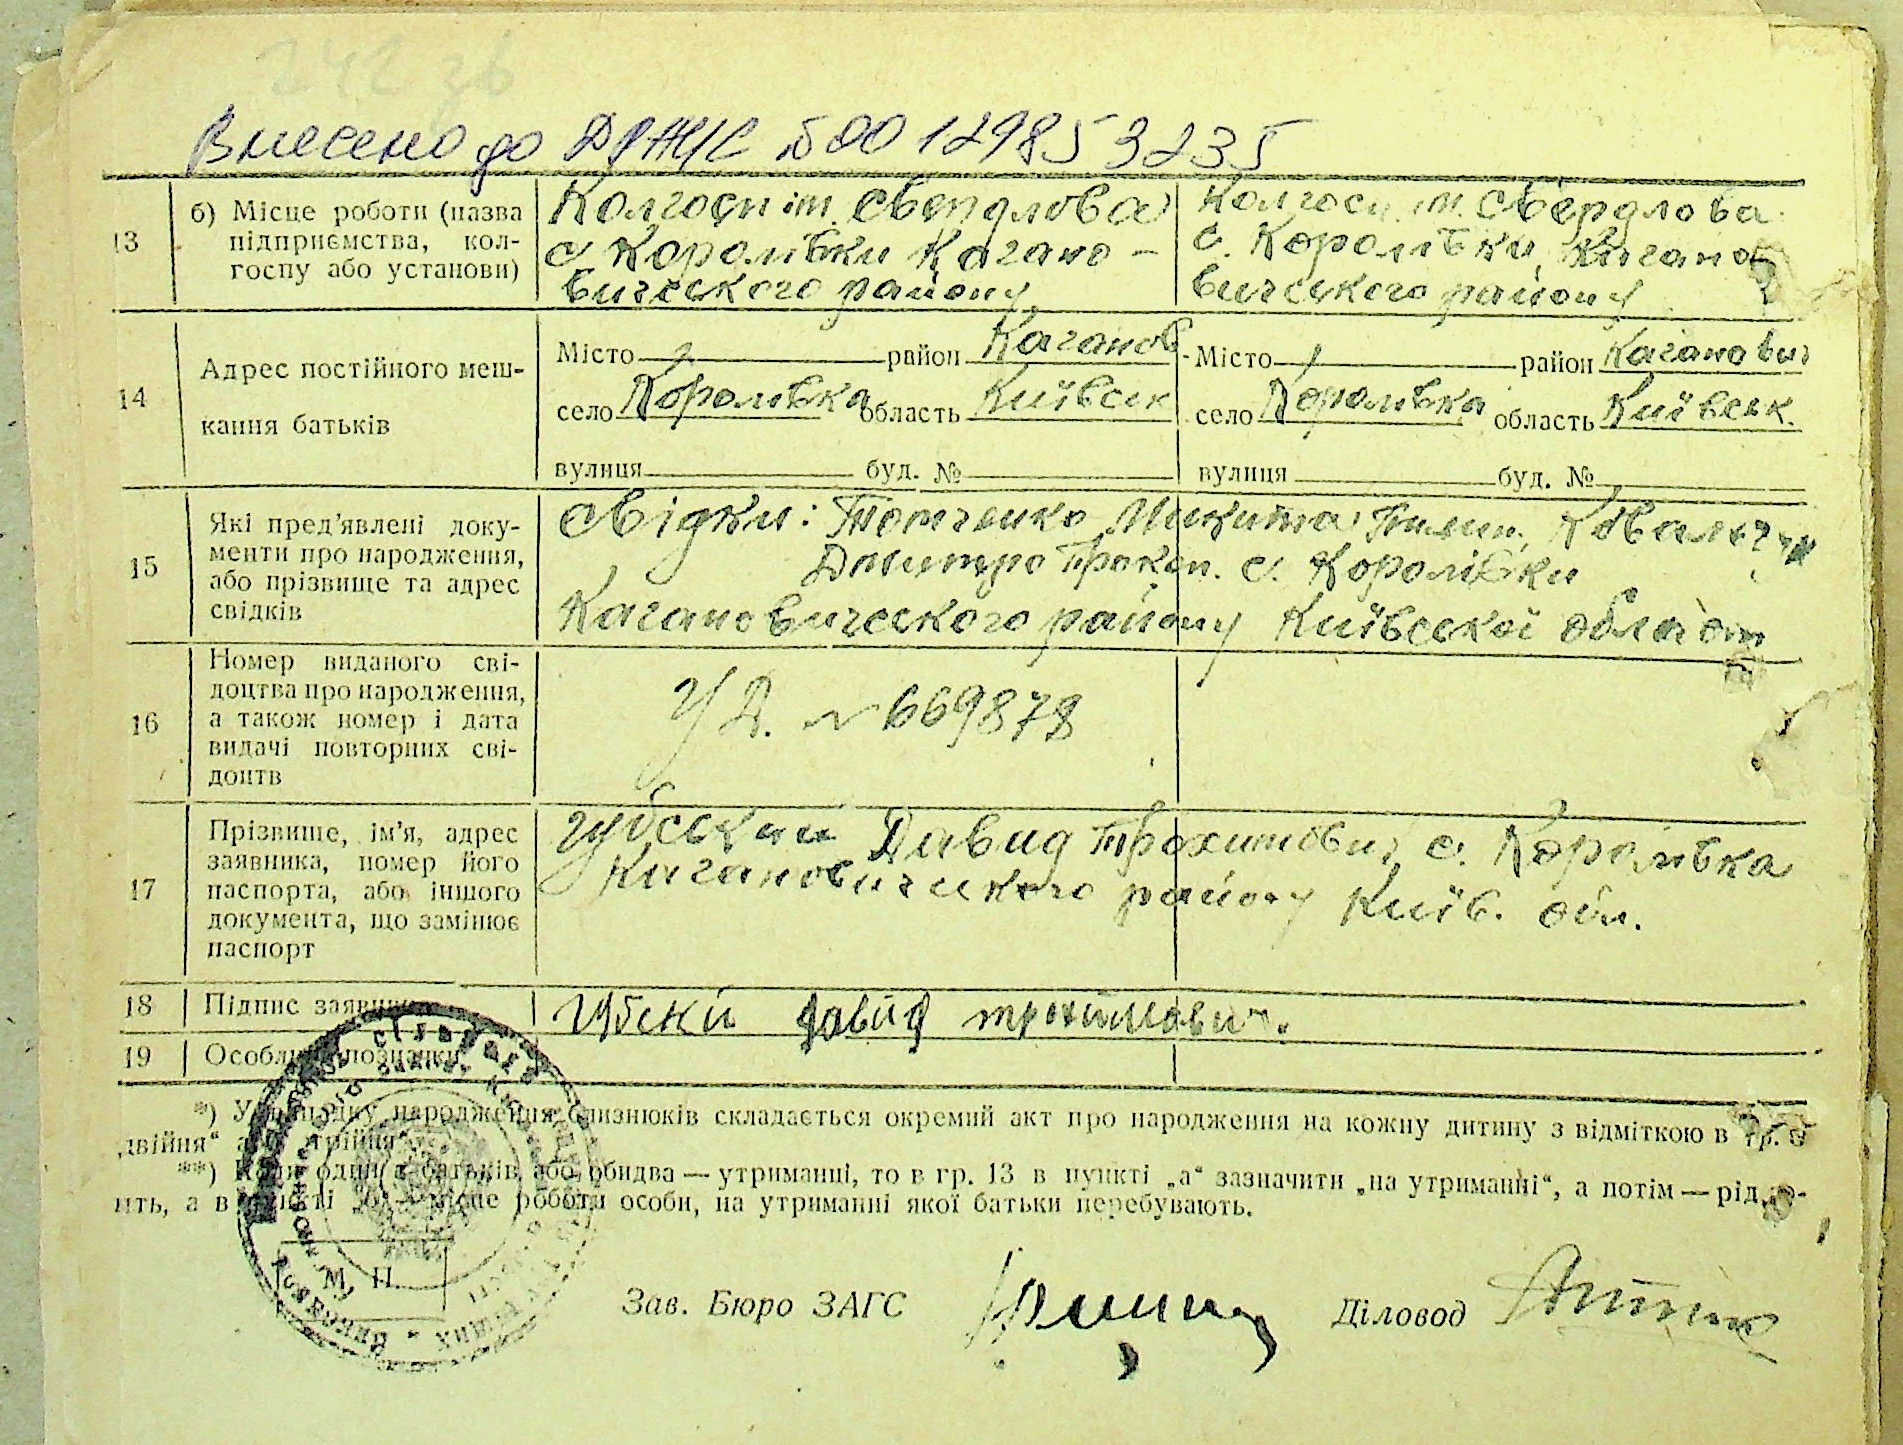 Внесено до ДРАЦС № 00129853235
13
б) Місце роботи (назва
підприємства, кол-
госпу або установи)
Колгосп ім. Свердлова
с Королівки Кагано-
вичського району
Колгосп ім. Свердлова
с. Королівки Кагано
вичського району
14
Адрес постійного меш-
кання батьків
Місто район Каганов
село Королівка область Київськ
вулиця буд. №
Місто район Каганович
село Королівка область Київськ.
вулиця буд. №
15
Які пред'явлені доку-
менти про народження,
або прізвище та адрес
свідків
Свідки: Микита Ковальчук
Дмитро Прокоп. с. Королівки
Кагановичеського району Київської област
16
Номер виданого сві-
доцтва про народження,
а також номер і дата
видачі повторних сві-
доцтв
УД. № 669878
17
Прізвище, ім'я, адрес
заявника, номер його
паспорта, або іншого
документа, що замінює
паспорт
Губський Давид Трохимович с. Королівка
Кагановичського району Київ. обл.
18
Підпис заявника
Губскій давид трохимович.
19
Особливі позначки
*) У випадку народження близнюків складається окремий акт про народження на кожну дитину з відміткою в гр. 5
„двійня“ або „трійня“.
**) Коли один з батьків або обидва — утриманці, то в гр. 13 в пункті „а“ зазначити „на утриманні“, а потім — рід за-
ять, а в пункті „б“ — місце роботи особи, на утриманні якої батьки перебувають.
М. П.
Зав. Бюро ЗАГС
Діловод